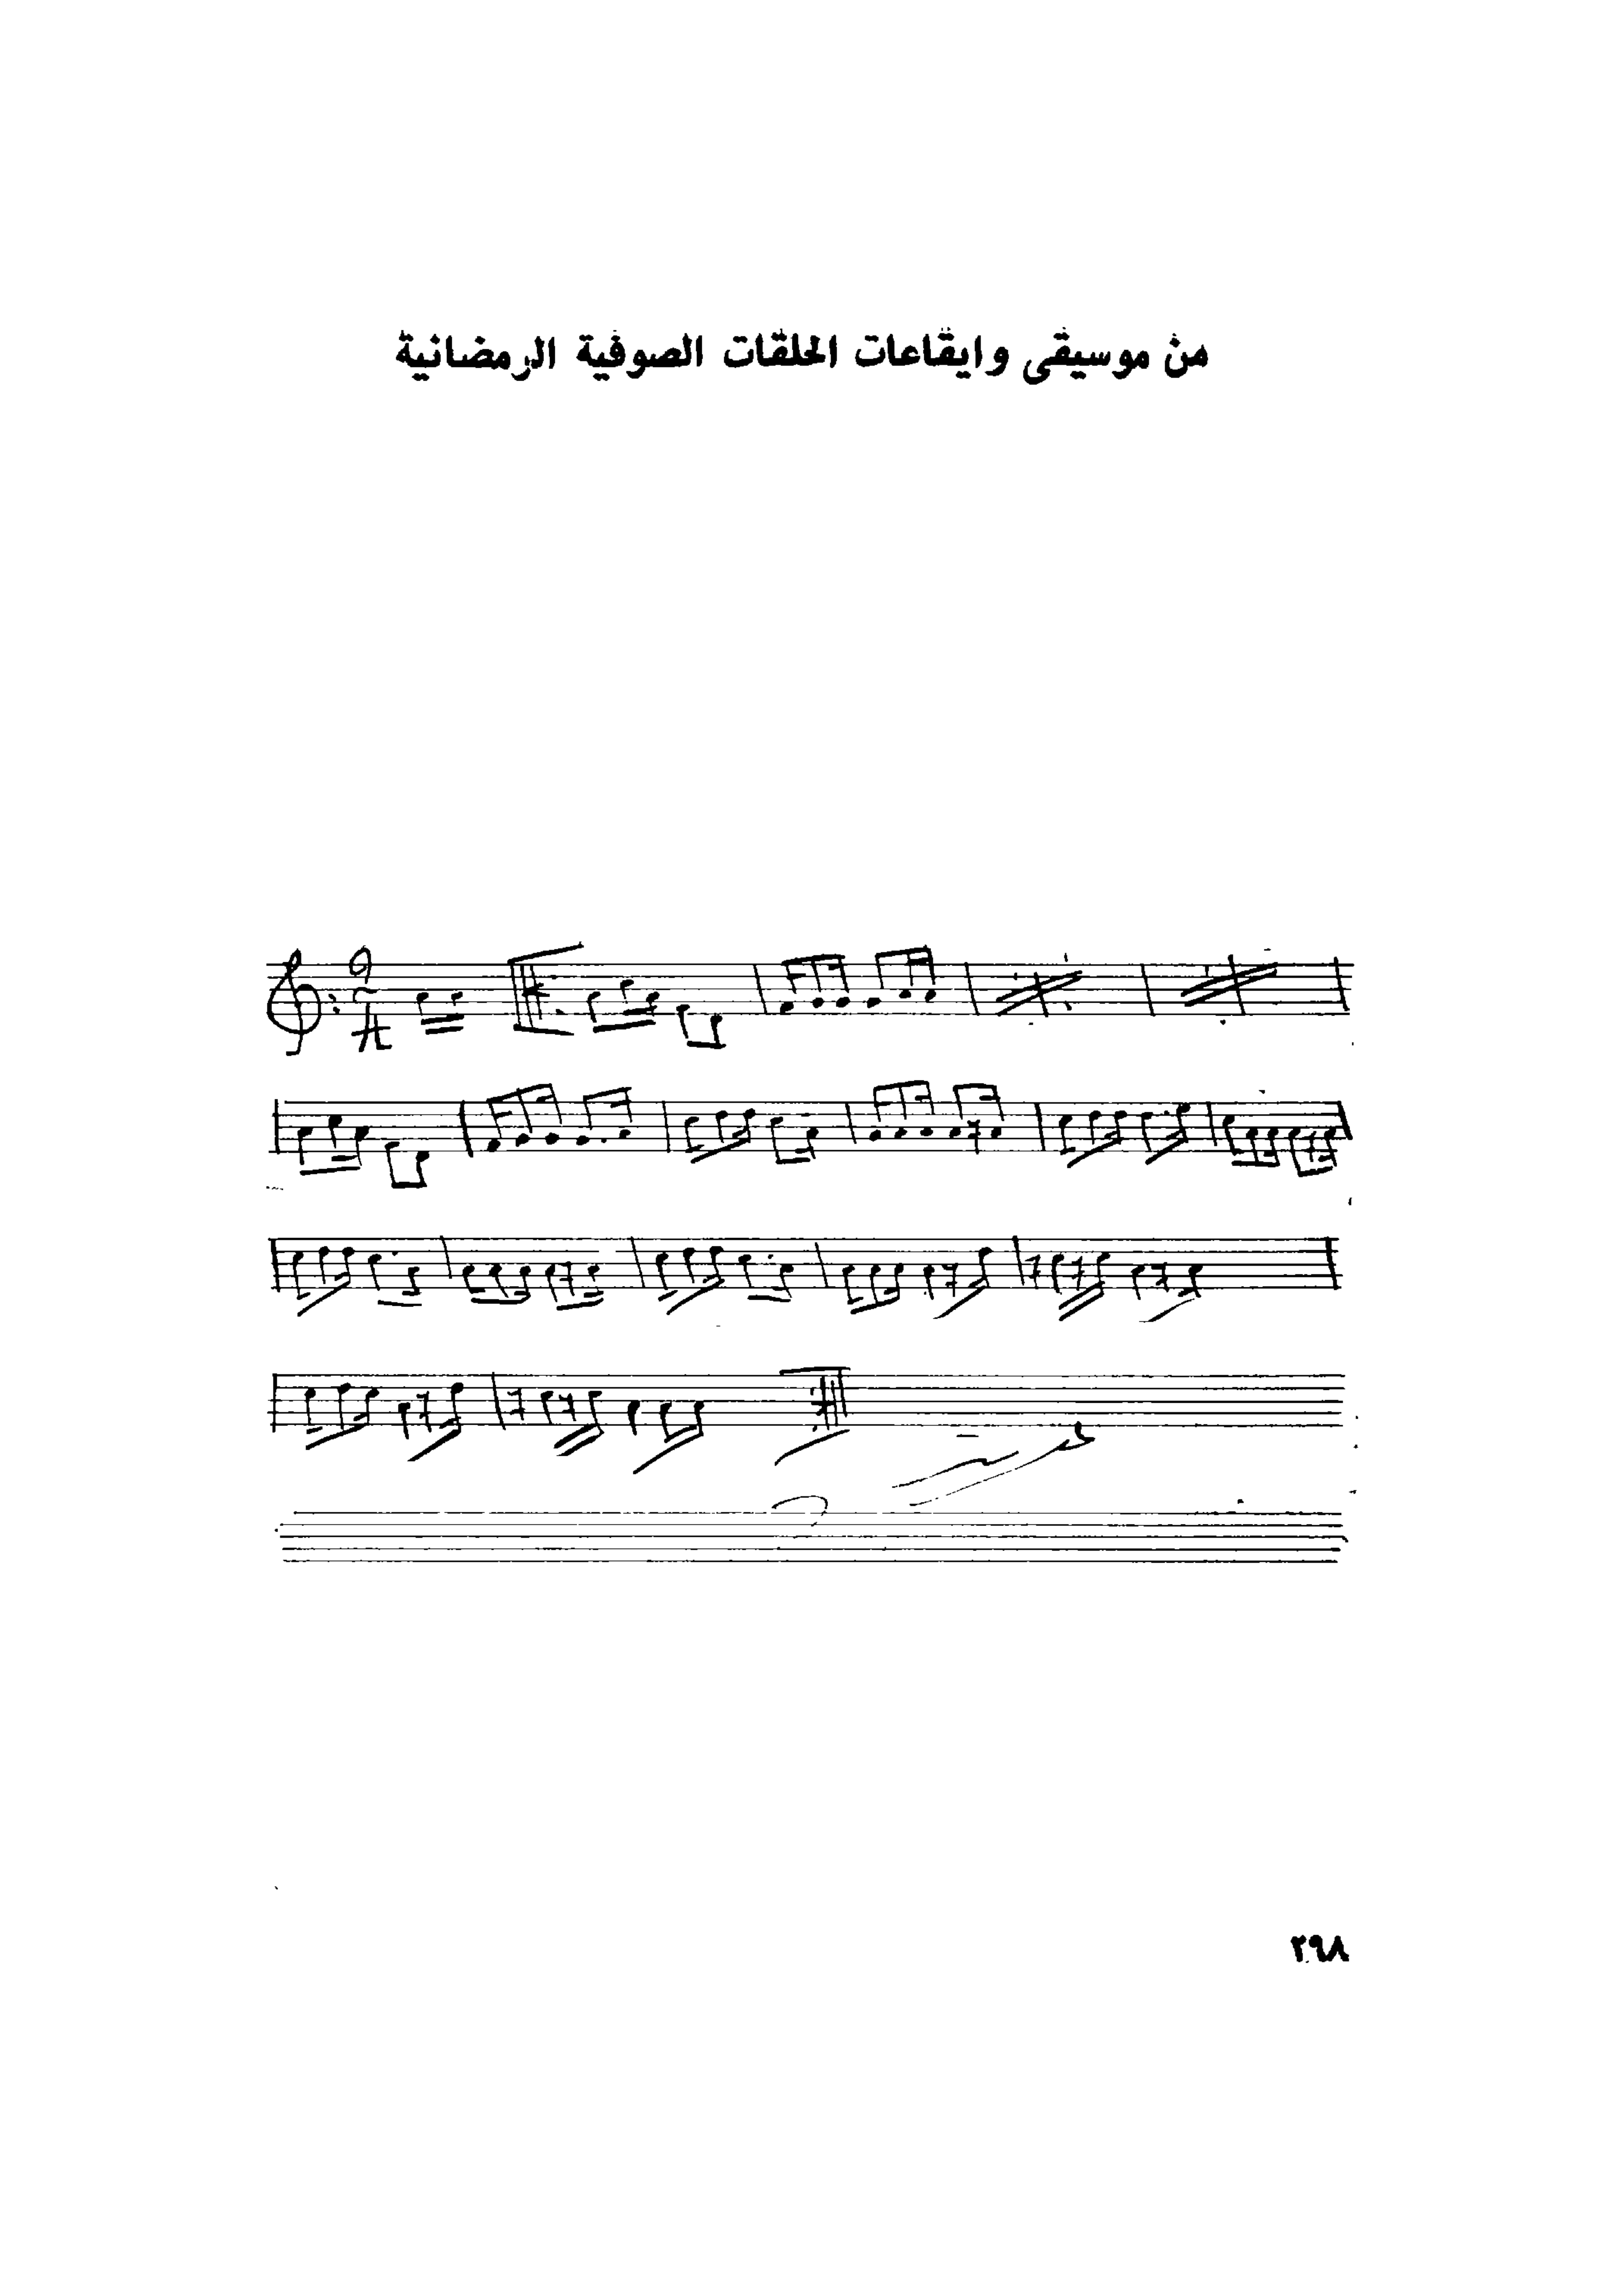 من موسيقى وايقاعات الحلقات الصوفية الرمضانية
٢٩٨